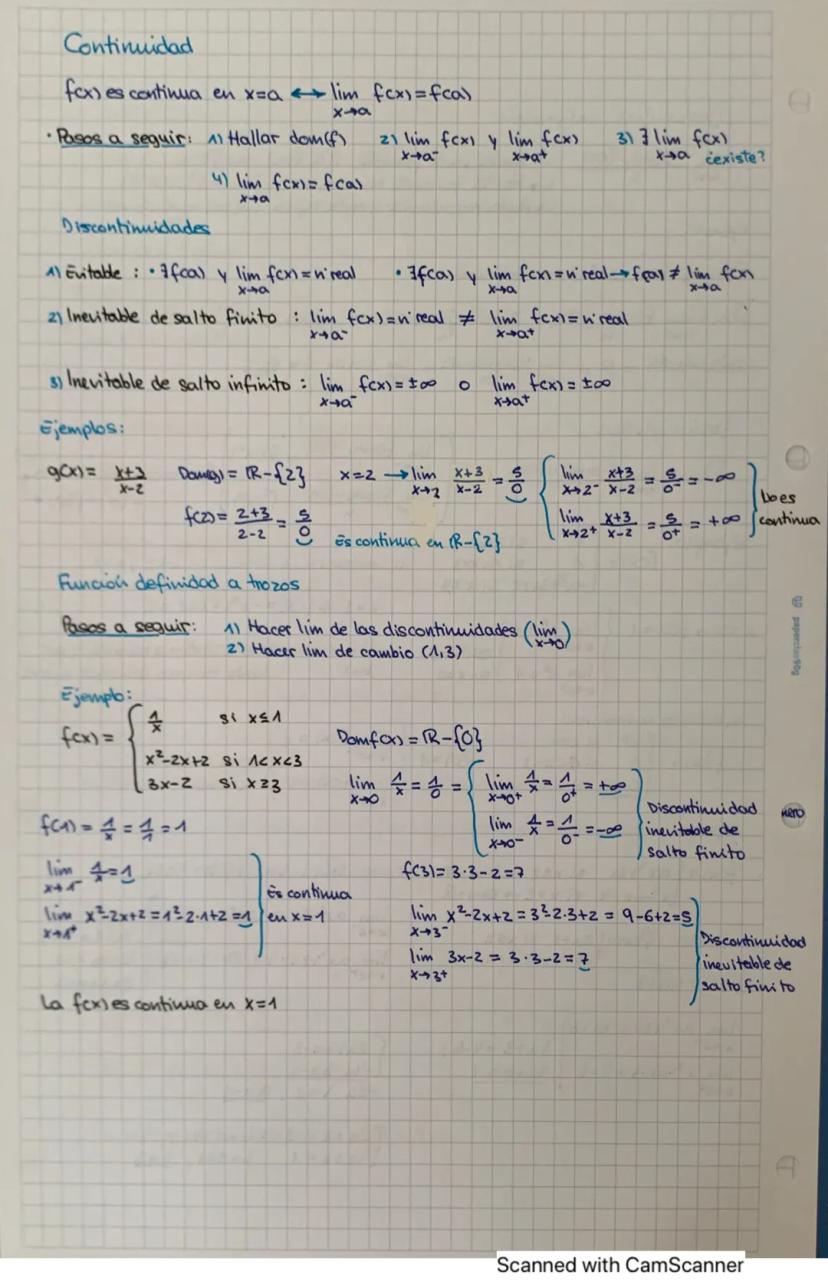 Continuidad
f(x) es continua en x=a ↔ lim x→a f(x) = f(a)
· Pasos a seguir: 1) Hallar dom(f) 2) lim x→a⁻ f(x) y lim x→a⁺ f(x) 3) ∃ lim x→a f(x) ¿existe?
4) lim x→a f(x) = f(a)
Discontinuidades
1) Evitable : · ∄f(a) y lim x→a f(x) = nº real · ∃f(a) y lim x→a f(x) = nº real → f(a) ≠ lim x→a f(x)
2) Inevitable de salto finito : lim x→a⁻ f(x) = nº real ≠ lim x→a⁺ f(x) = nº real
3) Inevitable de salto infinito : lim x→a⁻ f(x) = ±∞ o lim x→a⁺ f(x) = ±∞
Ejemplos:
g(x) = x+3/x-2 Dom(g) = ℝ-{2} x=2 → lim x→2 x+3/x-2 = 5/0 { lim x→2⁻ x+3/x-2 = 5/0⁻ = -∞
lim x→2⁺ x+3/x-2 = 5/0⁺ = +∞ } No es continua
f(2) = 2+3/2-2 = 5/0 Es continua en ℝ-{2}
Función definidad a trozos
Pasos a seguir: 1) Hacer lim de las discontinuidades (lim x→0)
2) Hacer lim de cambio (1,3)
Ejemplo:
f(x) = { 1/x si x≤1
x²-2x+2 si 1<x<3
3x-2 si x≥3
Domf(x) = ℝ-{0}
lim x→0 1/x = 1/0 = { lim x→0⁺ 1/x = 1/0⁺ = +∞
lim x→0⁻ 1/x = 1/0⁻ = -∞ } Discontinuidad inevitable de salto finito
f(1) = 1/x = 1/1 = 1
lim x→1⁻ 1/x = 1
lim x→1⁺ x²-2x+2 = 1²-2·1+2 = 1 } Es continua en x=1
f(3) = 3·3-2 = 7
lim x→3⁻ x²-2x+2 = 3²-2·3+2 = 9-6+2 = 5
lim x→3⁺ 3x-2 = 3·3-2 = 7 } Discontinuidad inevitable de salto finito
La f(x) es continua en x=1
Scanned with CamScanner